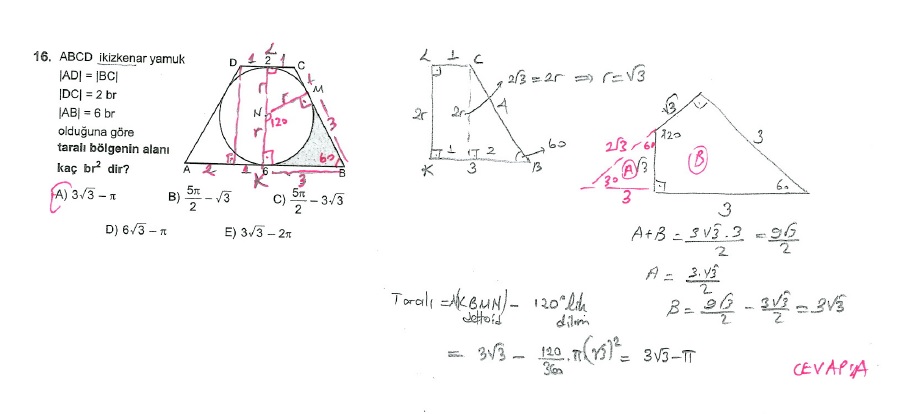 16. ABCD ikizkenar yamuk
|AD| = |BC|
|DC| = 2 br
|AB| = 6 br
olduğuna göre
taralı bölgenin alanı
kaç br² dir?
A) 3√3 − π
B) 5π/2 − √3
C) 5π/2 − 3√3
D) 6√3 − π
E) 3√3 − 2π
L
D 1 2 1 C
1 M
r r
N 120
r 3
60
A 2 1 6 B
K 3
L 1 C
2√3 = 2r ⇒ r = √3
2r 2r 4
60
K 1 2 B
3
√3
120 3
2√3 60
A √3 B
30 60
3 3
A+B = 3√3.3/2 = 9√3/2
A = 3.√3/2
B = 9√3/2 − 3√3/2 = 3√3
Taralı = A(KBMN) − 120° lik
deltoid dilim
= 3√3 − 120/360 . π(√3)² = 3√3 − π
CEVAP: A